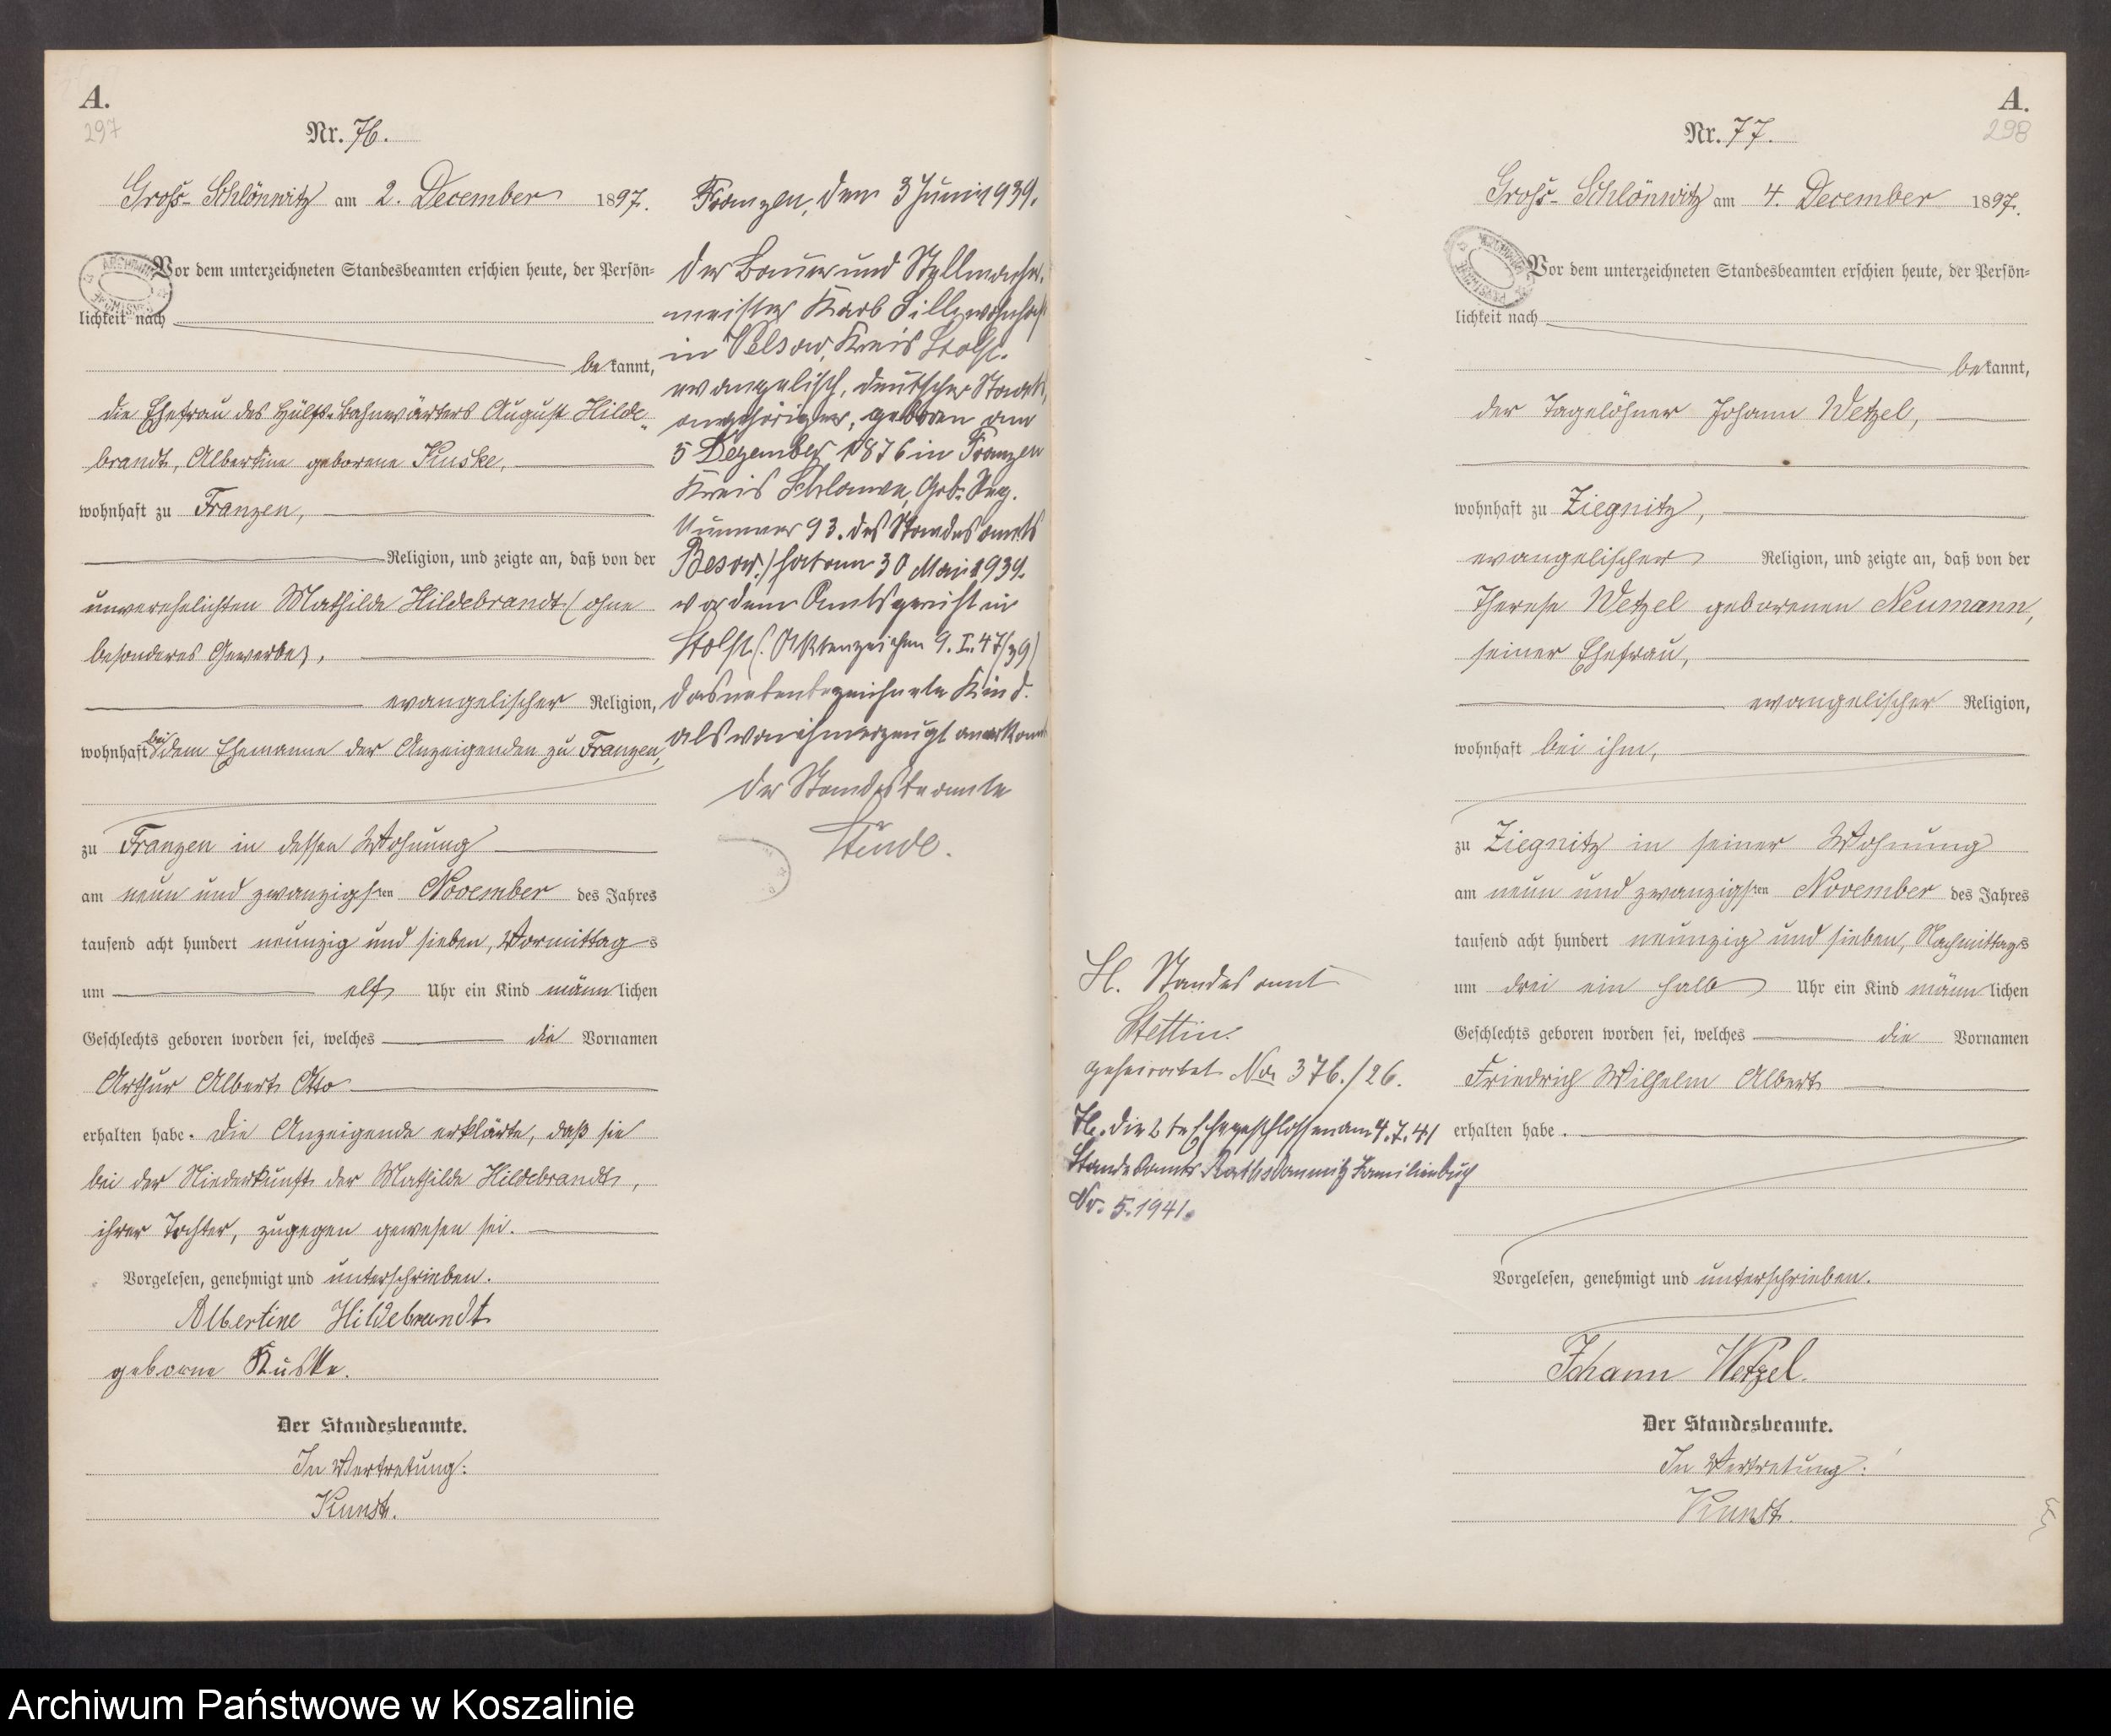 A.
297
Nr. 76.
Groß-Schlönwitz am 2. December 1897.
Vor dem unterzeichneten Standesbeamten erschien heute, der Persön-
lichkeit nach
bekannt,
die Ehefrau des Hülfs-Bahnwärters August Hilde-
brandt, Albertine geborene Kuske,
wohnhaft zu Franzen,
Religion, und zeigte an, daß von der
unverehelichten Mathilde Hildebrandt (ohne
besonderes Gewerbe),
evangelischer Religion,
wohnhaft bei dem Ehemanne der Anzeigenden zu Franzen,
zu Franzen in dessen Wohnung
am neun und zwanzigsten November des Jahres
tausend acht hundert neunzig und sieben, Vormittags
um elf Uhr ein Kind männlichen
Geschlechts geboren worden sei, welches die Vornamen
Arthur Albert Otto
erhalten habe. Die Anzeigende erklärte, daß sie
bei der Niederkunft der Mathilde Hildebrandt,
ihrer Tochter, zugegen gewesen sei.
Vorgelesen, genehmigt und unterschrieben.
Albertine Hildebrandt
geborne Kuske.
Der Standesbeamte.
In Vertretung:
Kundt.
Franzen, den 3 Juni 1939.
Der Bauer und Stellmacher-
meister Karl wohnhaft
in Velsow, Kreis Stolp.
evangelisch, deutscher Staats-
angehöriger, geboren am
5 Dezember 1876 in Franzen
Kreis Schlawe, Geb. Reg.
Nummer 93. des Standesamts
Besow.) hat am 30 Mai 1939.
vor dem Amtsgericht in
Stolp (Aktenzeichen 9. I. 47/39)
das nebenbezeichnete Kind
als von ihm erzeugt anerkannt
Der Standesbeamte
A.
298
Nr. 77.
Groß-Schlönwitz am 4. December 1897.
Vor dem unterzeichneten Standesbeamten erschien heute, der Persön-
lichkeit nach
bekannt,
der Tagelöhner Johann Wetzel,
wohnhaft zu Ziegnitz,
evangelischer Religion, und zeigte an, daß von der
Therese Wetzel geborenen Neumann,
seiner Ehefrau,
evangelischer Religion,
wohnhaft bei ihm,
zu Ziegnitz in seiner Wohnung
am neun und zwanzigsten November des Jahres
tausend acht hundert neunzig und sieben, Nachmittags
um drei ein halb Uhr ein Kind männlichen
Geschlechts geboren worden sei, welches die Vornamen
Friedrich Wilhelm Albert
erhalten habe.
Vorgelesen, genehmigt und unterschrieben.
Johann Wetzel.
Der Standesbeamte.
In Vertretung:
Kundt.
Standesamt
Stettin.
geheiratet No 376./26.
Die 2te Ehe geschlossen am 4.7.41
Standesamt Rathsdamnitz Familienbuch
Nr. 5.1941.
Archiwum Państwowe w Koszalinie